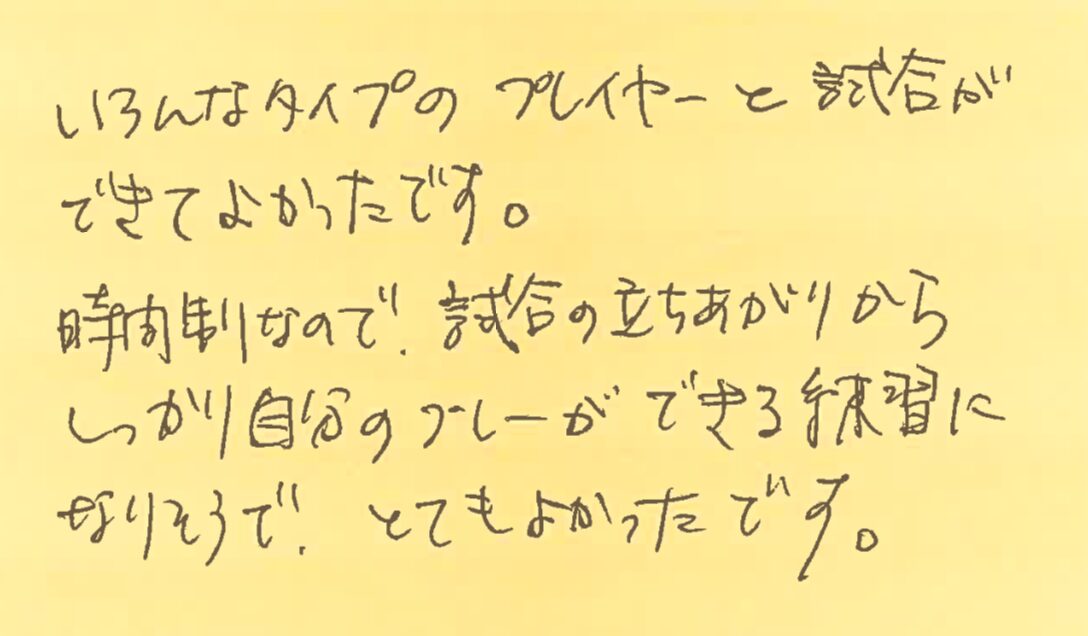 いろんなタイプの プレイヤーと 試合が
できてよかったです。
時間制なので、試合の立ちあがりから
しっかり自分のプレーが できる練習に
なりそうで、とてもよかったです。